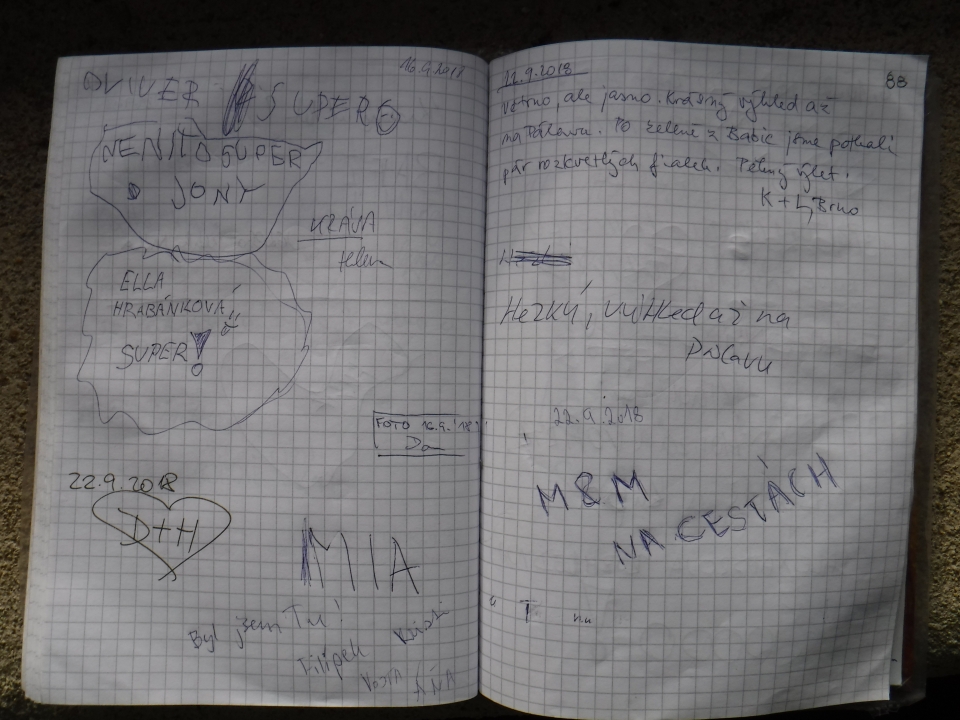 16.9.2018
OLIVER SUPER
NENÍ TO SUPER
JONY
KRÁVA
ELLA
HRABÁNKOVÁ
SUPER!
FOTO 16.9.'18
Dan
22.9.2018
D+H
MIA
Byl jsem Tu!
Filípek
ÁŇA
88
22.9.2018
Větrno, ale jasno. Krásný výhled až
na Pálavu. Po zelené z Babic jsme potkali
pár rozkvetlých fialek. Pěkný výlet.
K+L, Brno
Hezký, výhled až na
Pálavu
22.9.2018
M&M
NA CESTÁCH